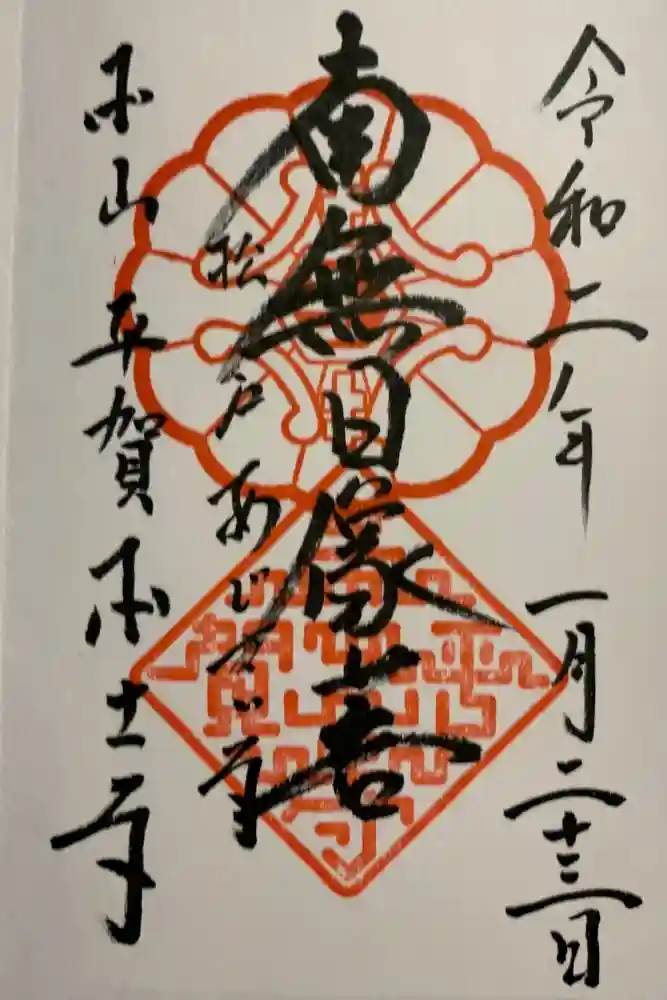 令和二年 一月二十三日
南無日像
松戸あじさい寺
本山 平賀本土寺